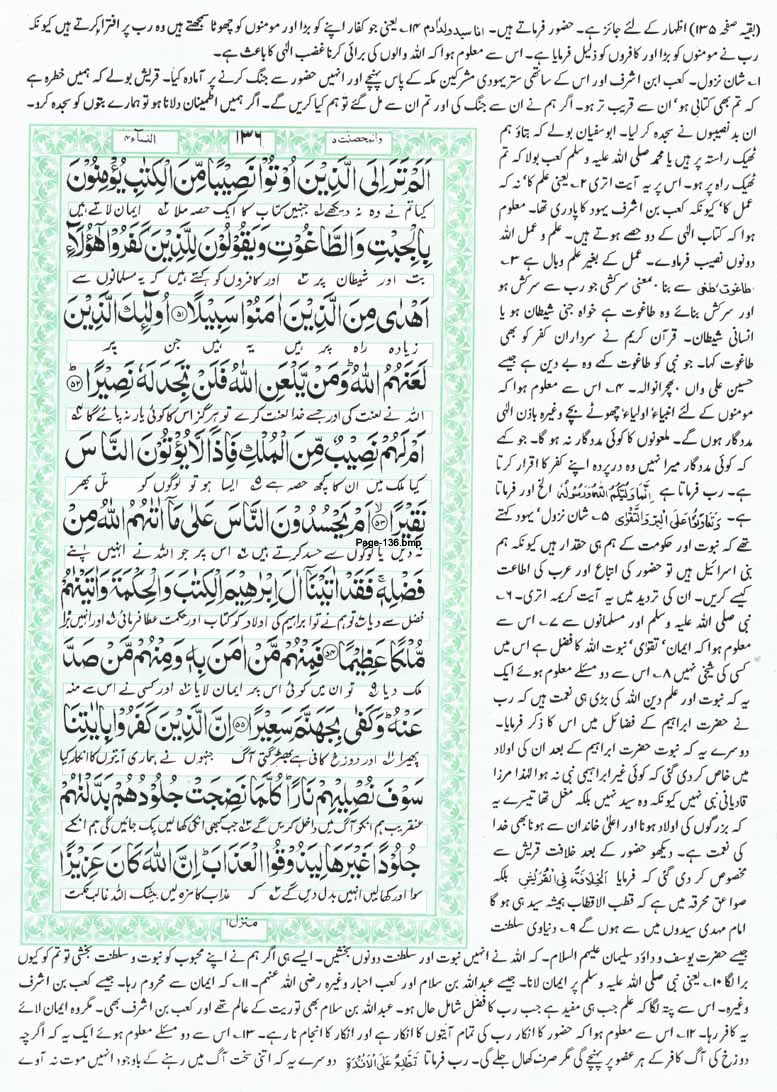 (بقیہ صفحہ ۱۳۵) اظہار کے لئے جائز ہے۔ حضور فرماتے ہیں۔ انا سید ولد اٰدم ۱۴۔ یعنی جو کفار اپنے کو بڑا اور مومنوں کو چھوٹا سمجھتے ہیں وہ رب پر افترا کرتے ہیں کیونکہ
رب نے مومنوں کو بڑا اور کافروں کو ذلیل فرمایا ہے۔ اس سے معلوم ہوا کہ اللہ والوں کی برائی کرنا غضب الٰہی کا باعث ہے۔
۱۔ شان نزول۔ کعب ابن اشرف اور اس کے ساتھی ستر یہودی مشرکین مکہ کے پاس پہنچے اور انہیں حضور سے جنگ کرنے پر آمادہ کیا۔ قریش بولے کہ ہمیں خطرہ ہے
کہ تم بھی کتابی ہو' ان سے قریب تر ہو۔ اگر ہم نے ان سے جنگ کی اور تم ان سے مل گئے تو ہم کیا کریں گے۔ اگر ہمیں اطمینان دلانا ہو تو ہمارے بتوں کو سجدہ کرو۔
ان بد نصیبوں نے سجدہ کر لیا۔ ابو سفیان بولے کہ بتاؤ ہم
ٹھیک راستہ پر ہیں یا محمد صلی اللہ علیہ وسلم کعب بولا کہ تم
ٹھیک راہ پر ہو۔ اس پر یہ آیت اتری ۲۔ یعنی علم کا' نہ کہ
عمل کا' کیونکہ کعب بن اشرف یہود کا پادری تھا۔ معلوم
ہوا کہ کتاب الٰہی کے دو حصے ہوتے ہیں۔ علم و عمل اللہ
دونوں نصیب فرماوے۔ عمل کے بغیر علم وبال ہے ۳۔
طاغوت طغی سے بنا۔ بمعنی سرکشی جو رب سے سرکش ہو
اور سرکش بنائے وہ طاغوت ہے خواہ جنی شیطان ہو یا
انسانی شیطان۔ قرآن کریم نے سرداران کفر کو بھی
طاغوت کہا۔ جو نبی کو طاغوت کہے وہ بے دین ہے جیسے
حسین علی واں بھچرانوالہ۔ ۴۔ اس سے معلوم ہوا کہ
مومنوں کے لئے انبیاء' اولیاء' چھوٹے بچے وغیرہ باذن الٰہی
مددگار ہوں گے۔ ملعونوں کا کوئی مددگار نہ ہو گا۔ جو کہے
کہ کوئی مددگار میرا نہیں وہ در پردہ اپنے کفر کا اقرار کرتا
ہے۔ رب فرماتا ہے اِنَّمَا وَلِیُّکُمُ اللّٰہُ وَرَسُوْلُہٗ الخ اور فرماتا
ہے۔ وَتَعَاوَنُوْا عَلَی الْبِرِّ وَالتَّقْوٰی ۵۔ شان نزول' یہود کہتے
تھے کہ نبوت اور حکومت کے ہم ہی حقدار ہیں کیونکہ ہم
بنی اسرائیل ہیں تو حضور کی اتباع اور عرب کی اطاعت
کیسے کریں۔ ان کی تردید میں یہ آیت کریمہ اتری۔ ۶۔
نبی صلی اللہ علیہ وسلم اور مسلمانوں سے ۷۔ اس سے
معلوم ہوا کہ ایمان' تقویٰ' نبوت اللہ کا فضل ہے اس میں
کسی کی شیخی نہیں ۸۔ اس سے دو مسئلے معلوم ہوئے ایک
یہ کہ نبوت اور علم دین اللہ کی بڑی ہی نعمت ہیں کہ رب
نے حضرت ابراہیم کے فضائل میں اس کا ذکر فرمایا۔
دوسرے یہ کہ نبوت حضرت ابراہیم کے بعد ان کی اولاد
میں خاص کر دی گئی کہ کوئی غیر ابراہیمی نبی نہ ہوا لہٰذا مرزا
قادیانی نبی نہیں کیونکہ وہ سید نہیں بلکہ مغل تھا تیسرے یہ
کہ بزرگوں کی اولاد ہونا اور اعلیٰ خاندان سے ہونا بھی خدا
کی نعمت ہے۔ دیکھو حضور کے بعد خلافت قریش سے
مخصوص کر دی گئی کہ فرمایا اَلْخِلَافَۃُ فِی الْقُرَیْشِ بلکہ
صواعق محرقہ میں ہے کہ قطب الاقطاب ہمیشہ سید ہی ہو گا
امام مہدی سیدوں میں سے ہوں گے ۹۔ دنیاوی سلطنت
والمحصنت ۵
۱۳۶
النساء ۴
اَلَمْ تَرَ اِلَى الَّذِيْنَ اُوْتُوْا نَصِيْبًا مِّنَ الْكِتٰبِ يُؤْمِنُوْنَ
کیا تم نے وہ نہ دیکھے جنہیں کتاب کا ایک حصہ ملا ایمان لاتے ہیں
بِالْجِبْتِ وَالطَّاغُوْتِ وَيَقُوْلُوْنَ لِلَّذِيْنَ كَفَرُوْا هٰٓؤُلَآءِ
بت اور شیطان پر اور کافروں کو کہتے ہیں کہ یہ مسلمانوں سے
اَهْدٰى مِنَ الَّذِيْنَ اٰمَنُوْا سَبِيْلًا ﴿۵۱﴾ اُولٰٓئِكَ الَّذِيْنَ
زیادہ راہ پر ہیں یہ ہیں جن پر
لَعَنَهُمُ اللّٰهُ وَمَنْ يَّلْعَنِ اللّٰهُ فَلَنْ تَجِدَ لَهٗ نَصِيْرًا ﴿۵۲﴾
اللہ نے لعنت کی اور جسے خدا لعنت کرے تو ہرگز اس کا کوئی یار نہ پائے گا
اَمْ لَهُمْ نَصِيْبٌ مِّنَ الْمُلْكِ فَاِذًا لَّا يُؤْتُوْنَ النَّاسَ
کیا ملک میں ان کا کچھ حصہ ہے ایسا ہو تو لوگوں کو تل بھر
نَقِيْرًا ﴿۵۳﴾ اَمْ يَحْسُدُوْنَ النَّاسَ عَلٰى مَآ اٰتٰىهُمُ اللّٰهُ مِنْ
Page-136.bmp
نہ دیں یا لوگوں سے حسد کرتے ہیں اس پر جو اللہ نے انہیں اپنے
فَضْلِهٖ فَقَدْ اٰتَيْنَآ اٰلَ اِبْرٰهِيْمَ الْكِتٰبَ وَالْحِكْمَةَ وَاٰتَيْنٰهُمْ
فضل سے دیا تو ہم نے تو ابراہیم کی اولاد کو کتاب اور حکمت عطا فرمائی اور انہیں بڑا
مُّلْكًا عَظِيْمًا ﴿۵۴﴾ فَمِنْهُمْ مَّنْ اٰمَنَ بِهٖ وَمِنْهُمْ مَّنْ صَدَّ
ملک دیا تو ان میں کوئی اس پر ایمان لایا اور کسی نے اس سے منہ
عَنْهُ وَكَفٰى بِجَهَنَّمَ سَعِيْرًا ﴿۵۵﴾ اِنَّ الَّذِيْنَ كَفَرُوْا بِاٰيٰتِنَا
پھیرا اور دوزخ کافی ہے بھڑکتی آگ جنہوں نے ہماری آیتوں کا انکار کیا
سَوْفَ نُصْلِيْهِمْ نَارًا كُلَّمَا نَضِجَتْ جُلُوْدُهُمْ بَدَّلْنٰهُمْ
عنقریب ہم انکو آگ میں داخل کریں گے جب کبھی انکی کھالیں پک جائیں گی ہم انکے
جُلُوْدًا غَيْرَهَا لِيَذُوْقُوا الْعَذَابَ اِنَّ اللّٰهَ كَانَ عَزِيْزًا
سوا اور کھالیں انہیں بدل دیں گے کہ عذاب کا مزہ لیں بیشک اللہ غالب حکمت
منزل ۱
جیسے حضرت یوسف و داؤد و سلیمان علیہم السلام۔ کہ اللہ نے انہیں نبوت اور سلطنت دونوں بخشیں۔ ایسے ہی اگر ہم نے اپنے محبوب کو نبوت و سلطنت بخشی تو تم کو کیوں
برا لگا ۱۰۔ یعنی نبی صلی اللہ علیہ وسلم پر ایمان لانا۔ جیسے عبداللہ بن سلام اور کعب احبار وغیرہ رضی اللہ عنہم۔ ۱۱۔ کہ ایمان سے محروم رہا۔ جیسے کعب بن اشرف
وغیرہ۔ اس سے پتہ لگا کہ علم جب ہی مفید ہے جب رب کا فضل شامل حال ہو۔ عبداللہ بن سلام بھی توریت کے عالم تھے اور کعب بن اشرف بھی۔ مگر وہ ایمان لائے
یہ کافر رہا۔ ۱۲۔ اس سے معلوم ہوا کہ حضور کا انکار رب کی تمام آیتوں کا انکار ہے اور انکار کا انجام نار ہے۔ ۱۳۔ اس سے دو مسئلے معلوم ہوئے ایک یہ کہ اگرچہ
دوزخ کی آگ کافر کے ہر عضو پر پہنچے گی مگر صرف کھال جلے گی۔ رب فرماتا تَطَّلِعُ عَلَی الْاَفْئِدَۃِ دوسرے یہ کہ اتنی سخت آگ میں رہنے کے باوجود انہیں موت نہ آوے